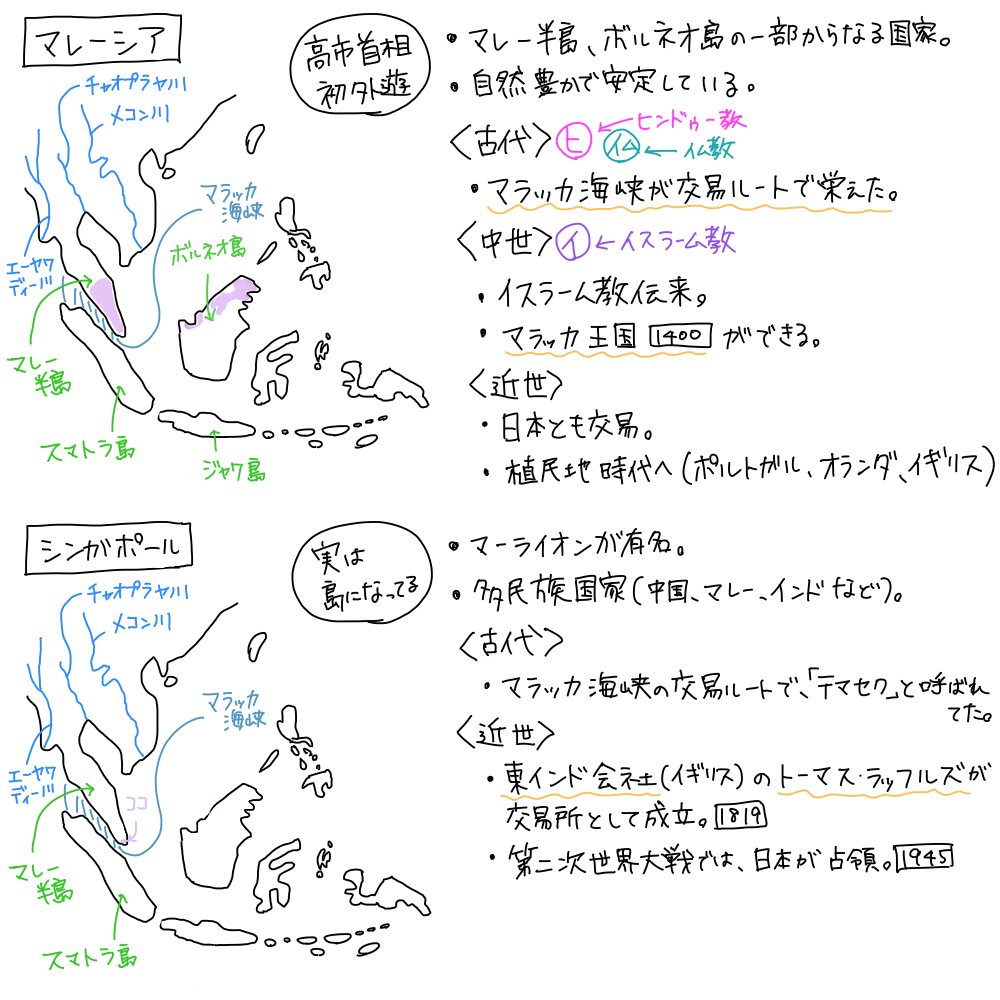 マレーシア
高市首相
初外遊
チャオプラヤ川
メコン川
マラッカ
海峡
ボルネオ島
エーヤワ
ディー川
マレー
半島
スマトラ島
ジャワ島
・マレー半島、ボルネオ島の一部からなる国家。
・自然豊かで安定している。
〈古代〉ヒ ←ヒンドゥー教
仏 ←仏教
・マラッカ海峡が交易ルートで栄えた。
〈中世〉イ ←イスラーム教
・イスラーム教伝来。
・マラッカ王国 1400 ができる。
〈近世〉
・日本とも交易。
・植民地時代へ(ポルトガル、オランダ、イギリス)
シンガポール
実は
島になってる
チャオプラヤ川
メコン川
マラッカ
海峡
エーヤワ
ディー川
ココ
マレー
半島
スマトラ島
・マーライオンが有名。
・多民族国家(中国、マレー、インドなど)。
〈古代〉
・マラッカ海峡の交易ルートで、「テマセク」と呼ばれ
てた。
〈近世〉
・東インド会社(イギリス)のトーマス・ラッフルズが
交易所として成立。1819
・第二次世界大戦では、日本が占領。1945